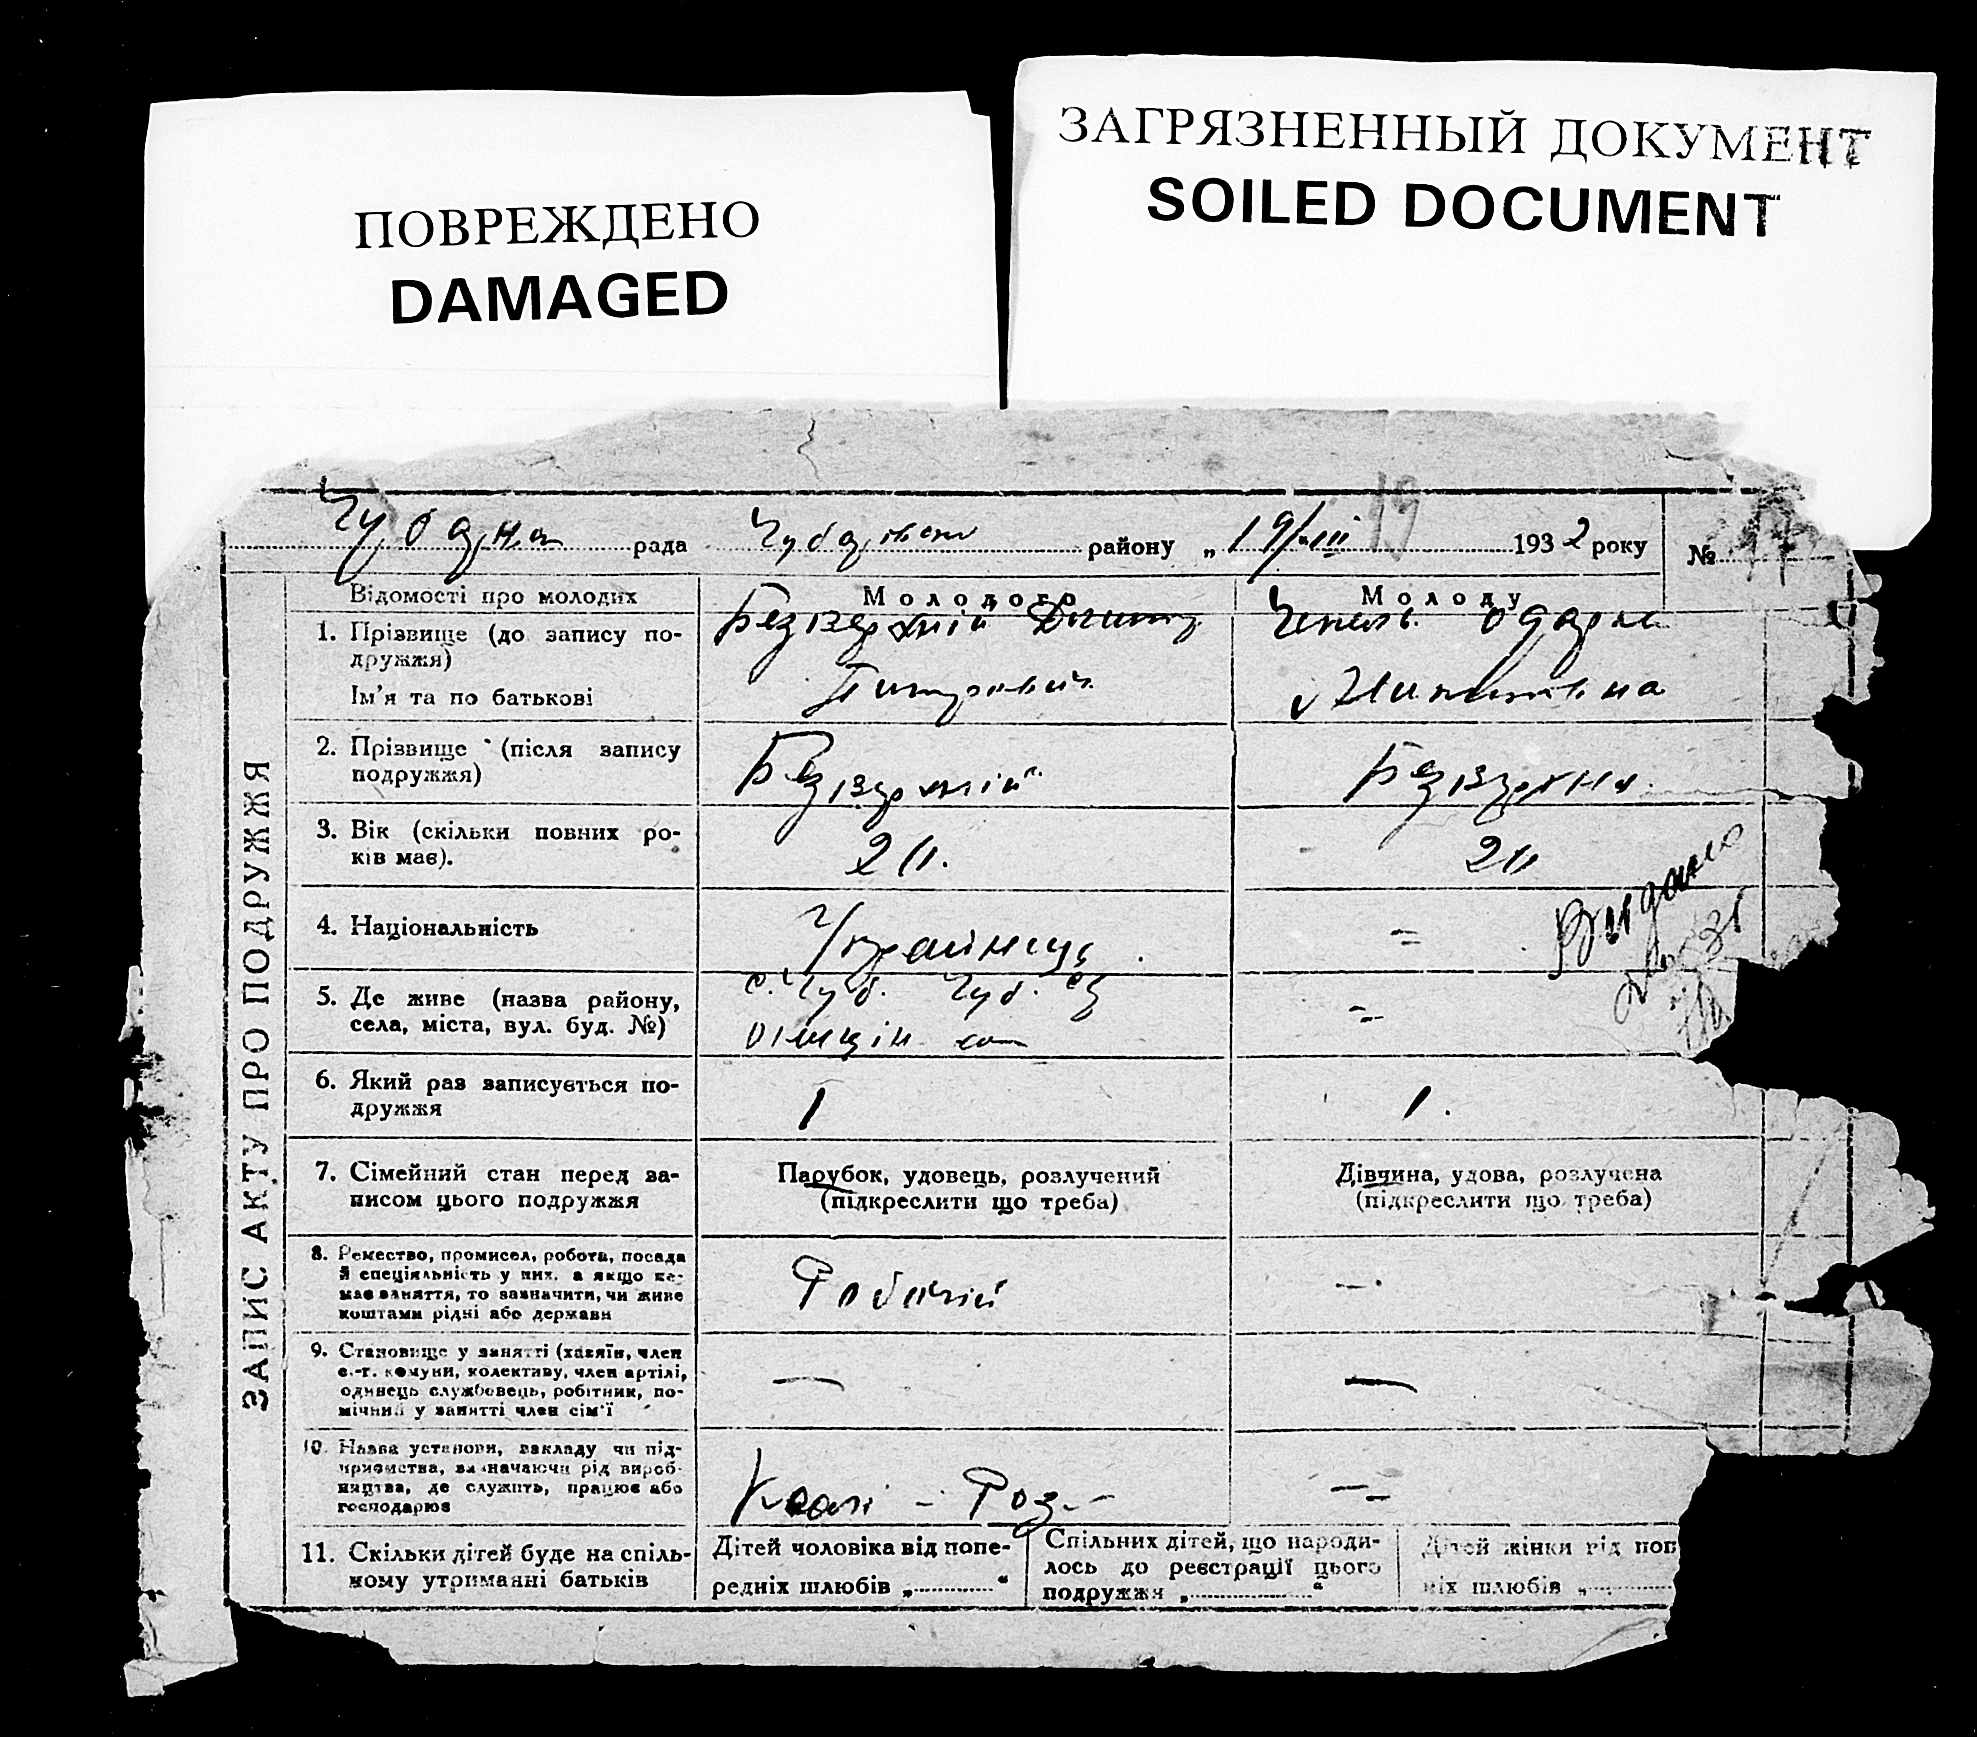 ПОВРЕЖДЕНО
DAMAGED
ЗАГРЯЗНЕННЫЙ ДОКУМЕНТ
SOILED DOCUMENT
рада району „ 19/III 19 1932 року №
ЗАПИС АКТУ ПРО ПОДРУЖЖЯ
Відомості про молодих
Молодого
Молоду
1. Прізвище (до запису по-
дружжя)
Ім'я та по батькові
Безверхній
Одарка
2. Прізвище (після запису
подружжя)
Безверхній
Безверхня
3. Вік (скільки повних ро-
ків має).
4. Національність
Українець
=
Видано
5. Де живе (назва району,
села, міста, вул. буд. №)
с. Чуб. Чуб.
=
6. Який раз записується по-
дружжя
1
1.
7. Сімейний стан перед за-
писом цього подружжя
Парубок, удовець, розлучений
(підкреслити що треба)
Дівчина, удова, розлучена
(підкреслити що треба)
8. Ремество, промисел, робота, посада
й спеціяльність у них, а якщо не-
має заняття, то зазначити, чи живе
коштами рідні або держави
Робочій
—
9. Становище у занятті (хазяїн, член
с.-г. комуни, колективу, член артілі,
одинець службовець, робітник, по-
мічний у занятті член сім'ї
—
—
10. Назва установи, закладу чи під-
приємства, зазначаючи рід вироб-
ництва, де служить, працює або
господарює
11. Скільки дітей буде на спіль-
ному утриманні батьків
Дітей чоловіка від попе-
редніх шлюбів „ “
Спільних дітей, що народи-
лось до реєстрації цього
подружжя „ “
Дітей жінки від поп
ніх шлюбів „